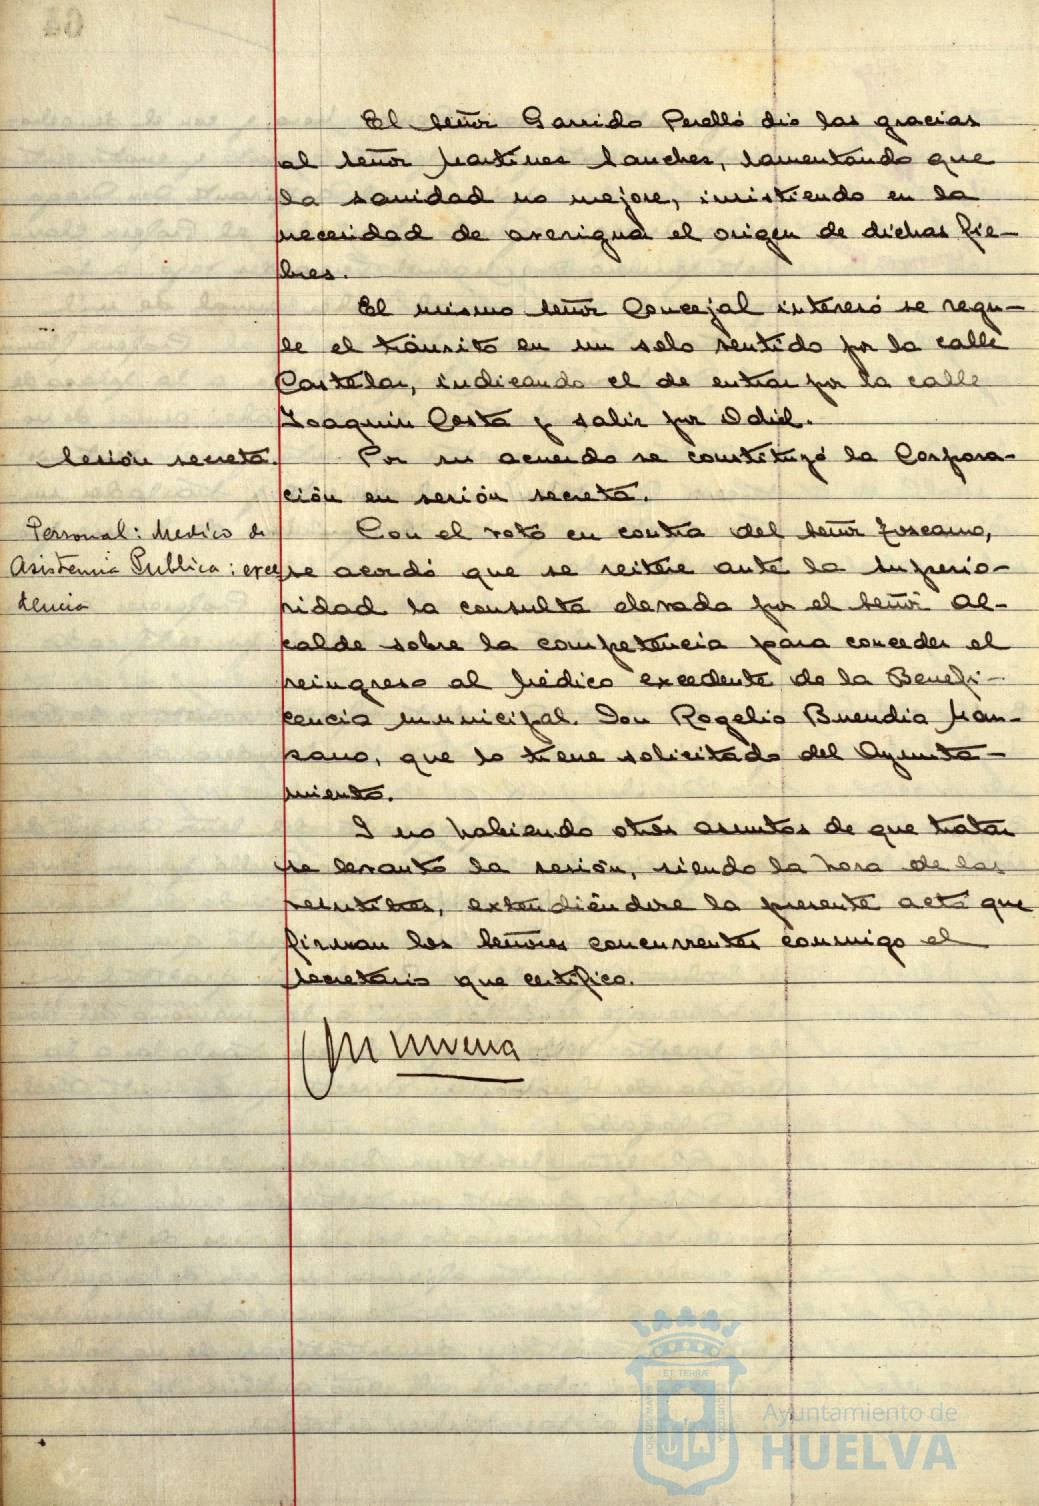 El Señor Garrido Perelló dió las gracias
al Señor Martinez Sanchez, lamentando que
la sanidad no mejore, insistiendo en la
necesidad de averiguar el origen de dichas fie-
bres.
El mismo Señor Concejal interesó se regu-
le el tránsito en un solo sentido por la calle
Castelar, indicando el de entrar por la calle
Joaquin Costa y salir por Odiel.
Sesión secreta.
Por su acuerdo se constituyó la Corpora-
ción en sesión secreta.
Personal: Medico de
Asistencia Publica: exce
dencia
Con el voto en contra del Señor Toscano,
se acordó que se reitere ante la Superio-
ridad la consulta elevada por el Señor Al-
calde sobre la competencia para conceder el
reingreso al Médico excedente de la Benefi-
cencia Municipal. Don Rogelio Buendia Man-
zano, que lo tiene solicitado del Ayunta-
miento.
I no habiendo otros asuntos de que tratar
se levantó la sesión, siendo la hora de las
extendiéndose la presente acta que
firman los Señores concurrentes conmigo el
Secretario que certifico.
Ayuntamiento de
HUELVA